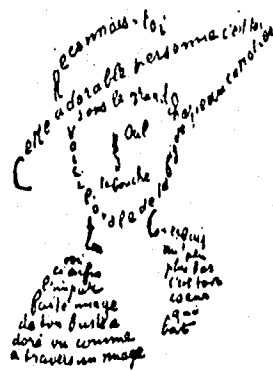 Reconnais-toi
Cette adorable personne c'est toi
Sous le grand chapeau canotier
Oeil
Nez
la bouche
Voici l'ovale de ta figure
Ton cou exquis
voi
ci enfin
l'impar
faite image
de ton buste a
doré vu comme
à travers un nuage
un peu
plus bas
c'est ton
coeur
qui
bat